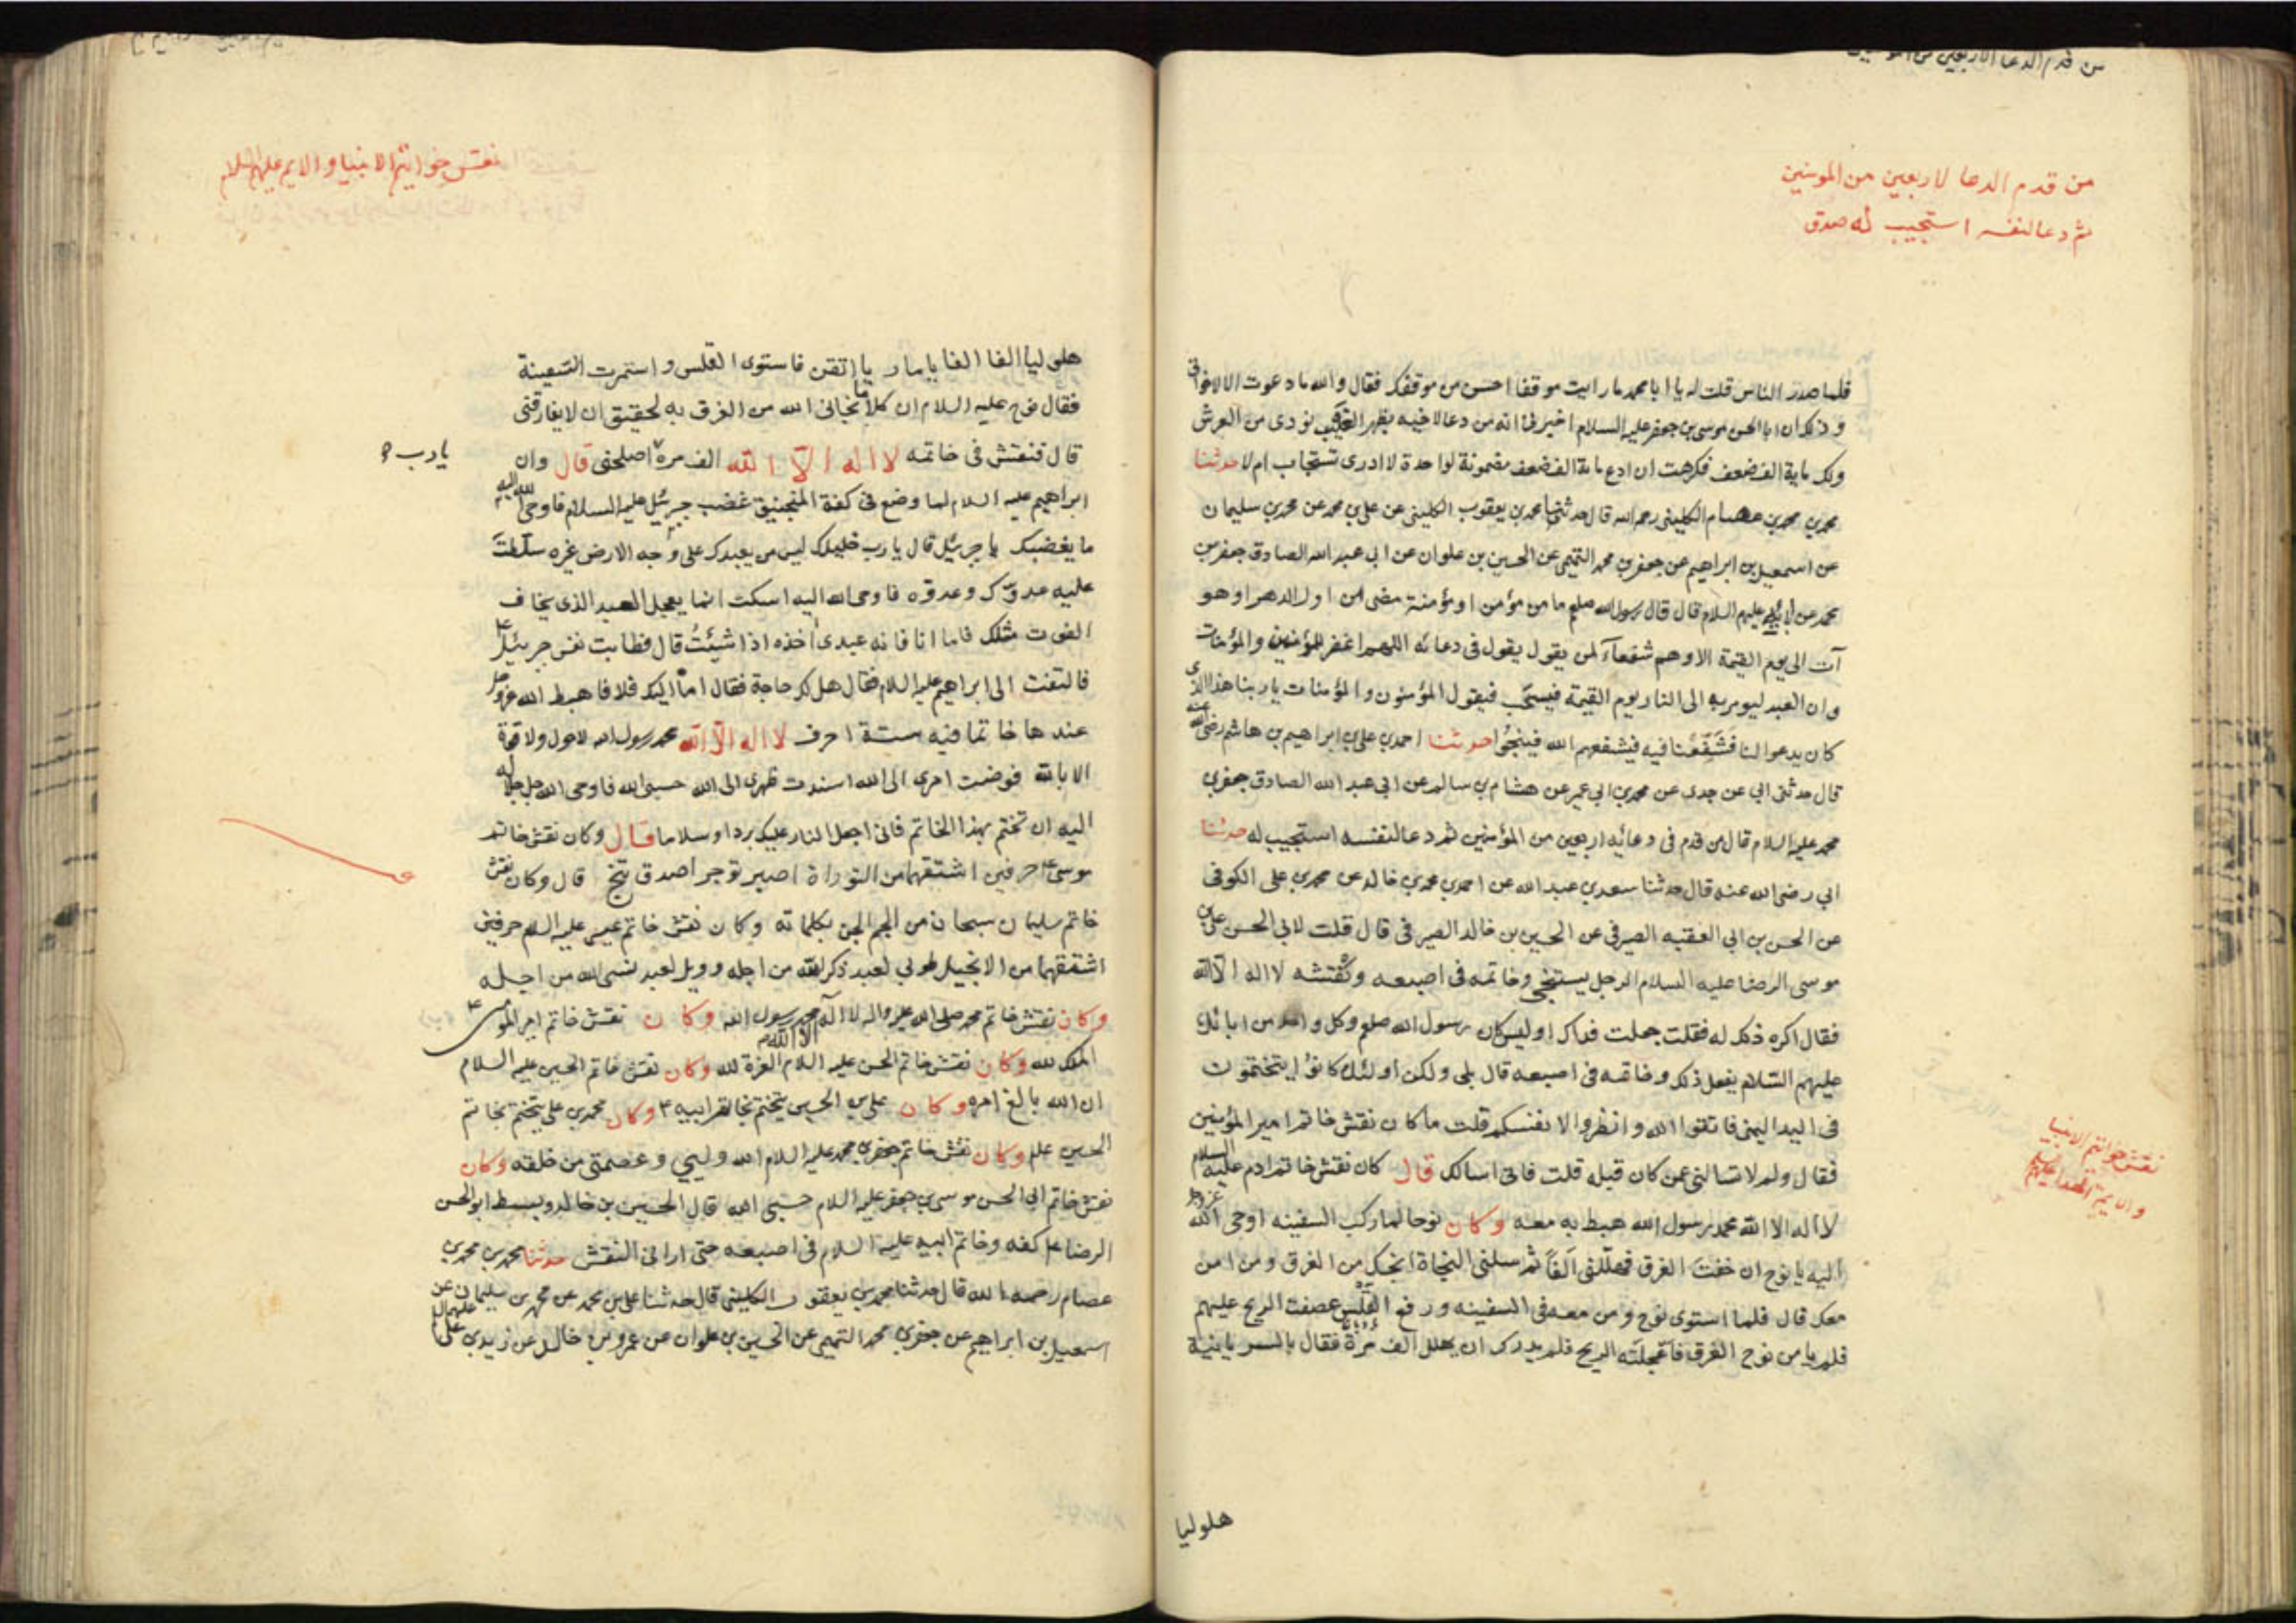 من قدم الدعا لاربعين من المومنين
ثم دعا لنفسه استجيب له صدق
فلما صدر الناس قلت له يا ابا محمد ما رايت موقفا احسن من موقفك فقال والله ما دعوت الا لاخوانی
وذلك ان ابا الحسن موسى بن جعفر عليه السلام اخبرنا انه من دعا لاخيه بظهر الغيب نودى من العرش
ولك ماية الف ضعف فكرهت ان ادع ماية الف ضعف مضمونة لواحدة لا ادرى تستجاب ام لا حدثنا
محمد بن محمد بن عصام الكلينى رحمه الله قال حدثنا محمد بن يعقوب الكلينى عن على بن محمد عن محمد بن سليمان
عن اسمعيل بن ابراهيم عن جعفر بن محمد التميمى عن الحسين بن علوان عن ابى عبد الله الصادق جعفر بن
محمد عن ابائه عليهم السلام قال قال رسول الله صلعم ما من مؤمن او مؤمنة مضى من اول الدهر او هو
آت الى يوم القيمة الا وهم شفعآء لمن يقول يقول فى دعائه اللهم اغفر للمؤمنين والمؤمنات
وان العبد ليومر به الى النار يوم القيمة فيسحب فيقول المؤمنون والمؤمنات يا ربنا هذا الذى
كان يدعو لنا فشفعنا فيه فيشفعهم الله فينجوا حدثنا احمد بن على بن ابراهيم بن هاشم رضى الله عنه
قال حدثنى ابى عن جدى عن محمد بن ابى عمير عن هشام بن سالم عن ابى عبد الله الصادق جعفر بن
محمد عليه السلام قال من قدم فى دعائه اربعين من المؤمنين ثم دعا لنفسه استجيب له حدثنا
ابى رضى الله عنه قال حدثنا سعد بن عبد الله عن احمد بن محمد بن خالد عن محمد بن على الكوفى
عن الحسن بن ابى العقبه الصيرفى عن الحسين بن خالد الصيرفى قال قلت لابى الحسن على بن
موسى الرضا عليه السلام الرجل يستنجى وخاتمه فى اصبعه ونقشه لا اله الا الله
فقال اكره ذلك له فقلت جعلت فداك اوليس كان رسول الله صلعم وكل واحد من ابائك
عليهم السلام يفعل ذلك وخاتمه فى اصبعه قال بلى ولكن اولئك كانوا يتختمون
فى اليد اليمنى فاتقوا الله وانظروا لانفسكم قلت ما كان نقش خاتم امير المؤمنين
فقال ولم لا تسالنى عمن كان قبله قلت فانى اسالك قال كان نقش خاتم ادم عليه السلام
لا اله الا الله محمد رسول الله هبط به معه وكان نوحا لما ركب السفينه اوحى الله عز وجل
اليه يا نوح ان خفت الغرق فهللنى الفا ثم سلنى النجاة انجك من الغرق ومن امن
معك قال فلما استوى نوح ومن معه فى السفينه ورفع القلس عصفت الريح عليهم
فلم يامن نوح الغرق فاعجلته الريح فلم يدرك ان يهلل الف مرة فقال بالسريانية
هلوليا
نقش خواتيم الانبيا
والايمة
نقش خواتيم الانبيا والايم عليهم السلام
هلوليا الفا الفا يا ماريا اتقن فاستوى القلس واستمرت السفينة
فقال نوح عليه السلام ان كلاما نجانى الله من الغرق به لحقيق ان لا يفارقنى
قال فنقش فى خاتمه لا اله الا الله الف مرة اصلحنى قال وان
يا رب
ابراهيم عليه السلام لما وضع فى كفة المنجنيق غضب جبرئيل عليه السلام فاوحى الله اليه
ما يغضبك يا جبرئيل قال يا رب خليلك ليس من يعبدك على وجه الارض غيره سلطت
عليه عدوك وعدوه فاوحى الله اليه اسكت انما يعجل العبد الذى يخاف
الفوت مثلك فاما انا فانه عبدى أخذه اذا شئت قال فطابت نفس جبرئيل
فالتفت الى ابراهيم عليه السلام فقال هل لك حاجة فقال اما اليك فلا فاهبط الله عز وجل
عندها خاتما فيه ستة احرف لا اله الا الله محمد رسول الله لا حول ولا قوة
الا بالله فوضت امرى الى الله اسندت ظهرى الى الله حسبى الله فاوحى الله جل جلاله
اليه ان تختم بهذا الخاتم فانى اجعل النار عليك بردا وسلاما قال وكان نقش خاتم
موسى حرفين اشتقهما من التوراة اصبر توجر اصدق تنج قال وكان نقش
خاتم سليمان سبحان من الجم الجن بكلماته وكان نقش خاتم عيسى عليه السلم حرفين
اشتقهما من الانجيل طوبى لعبد ذكر الله من اجله وويل لعبد نسى الله من اجله
وكان نقش خاتم محمد صلى الله عليه واله لا اله الا الله محمد رسول الله وكان نقش خاتم امير المؤمنين
الملك لله وكان نقش خاتم الحسن عليه السلام العزة لله وكان نقش خاتم الحسين عليه السلام
ان الله بالغ امره وكان على بن الحسين يتختم بخاتم ابيه وكان محمد بن على يتختم بخاتم
الحسين علم وكان نقش خاتم جعفر بن محمد عليه السلام الله وليي وعصمتى من خلقه وكان
نقش خاتم ابى الحسن موسى بن جعفر عليه السلام حسبى الله قال الحسين بن خالد وبسط ابو الحسن
الرضا كفه وخاتم ابيه عليه السلام فى اصبعه حتى ارانى النقش حدثنا محمد بن محمد بن
عصام رحمه الله قال حدثنا محمد بن يعقوب الكلينى قال حدثنا على بن محمد عن محمد بن سليمان عن
اسمعيل بن ابراهيم عن جعفر بن محمد التميمى عن الحسين بن علوان عن عمرو بن خالد عن زيد بن على